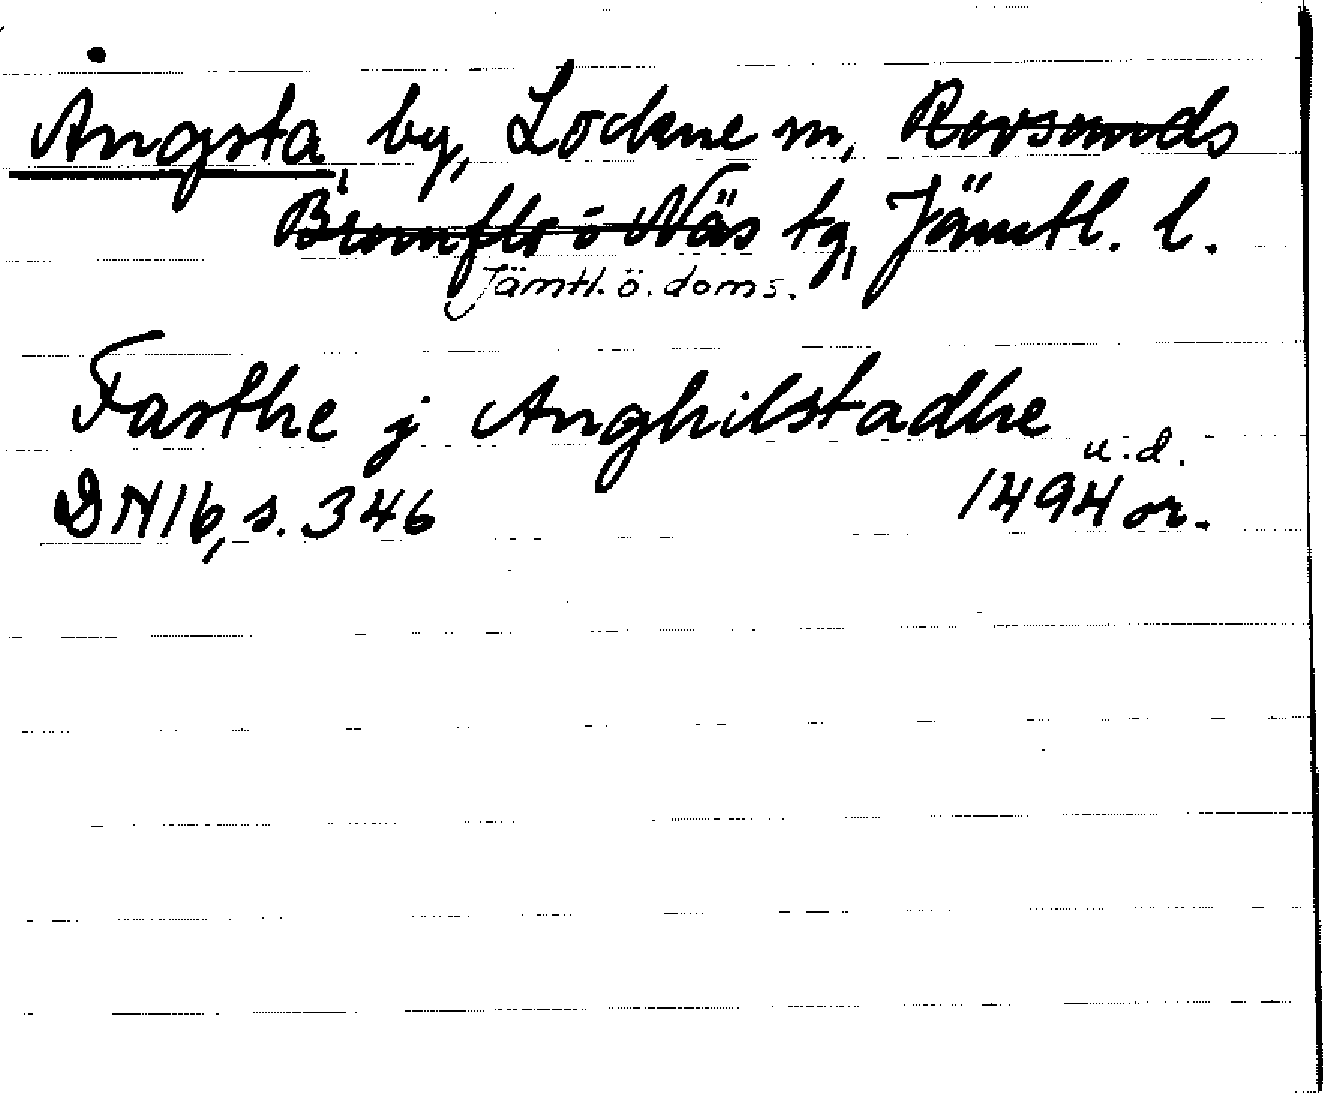 Ångsta, by, Lockne sn, Revsunds
Brunflo o Näs tg, Jämtl. l.
Jämtl. ö. doms.
Fasthe j Anghilstadhe
u.d.
DN16, s. 346 1494 or.